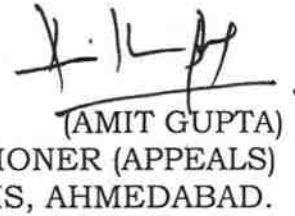 (AMIT GUPTA)
IONER (APPEALS)
IS, AHMEDABAD.